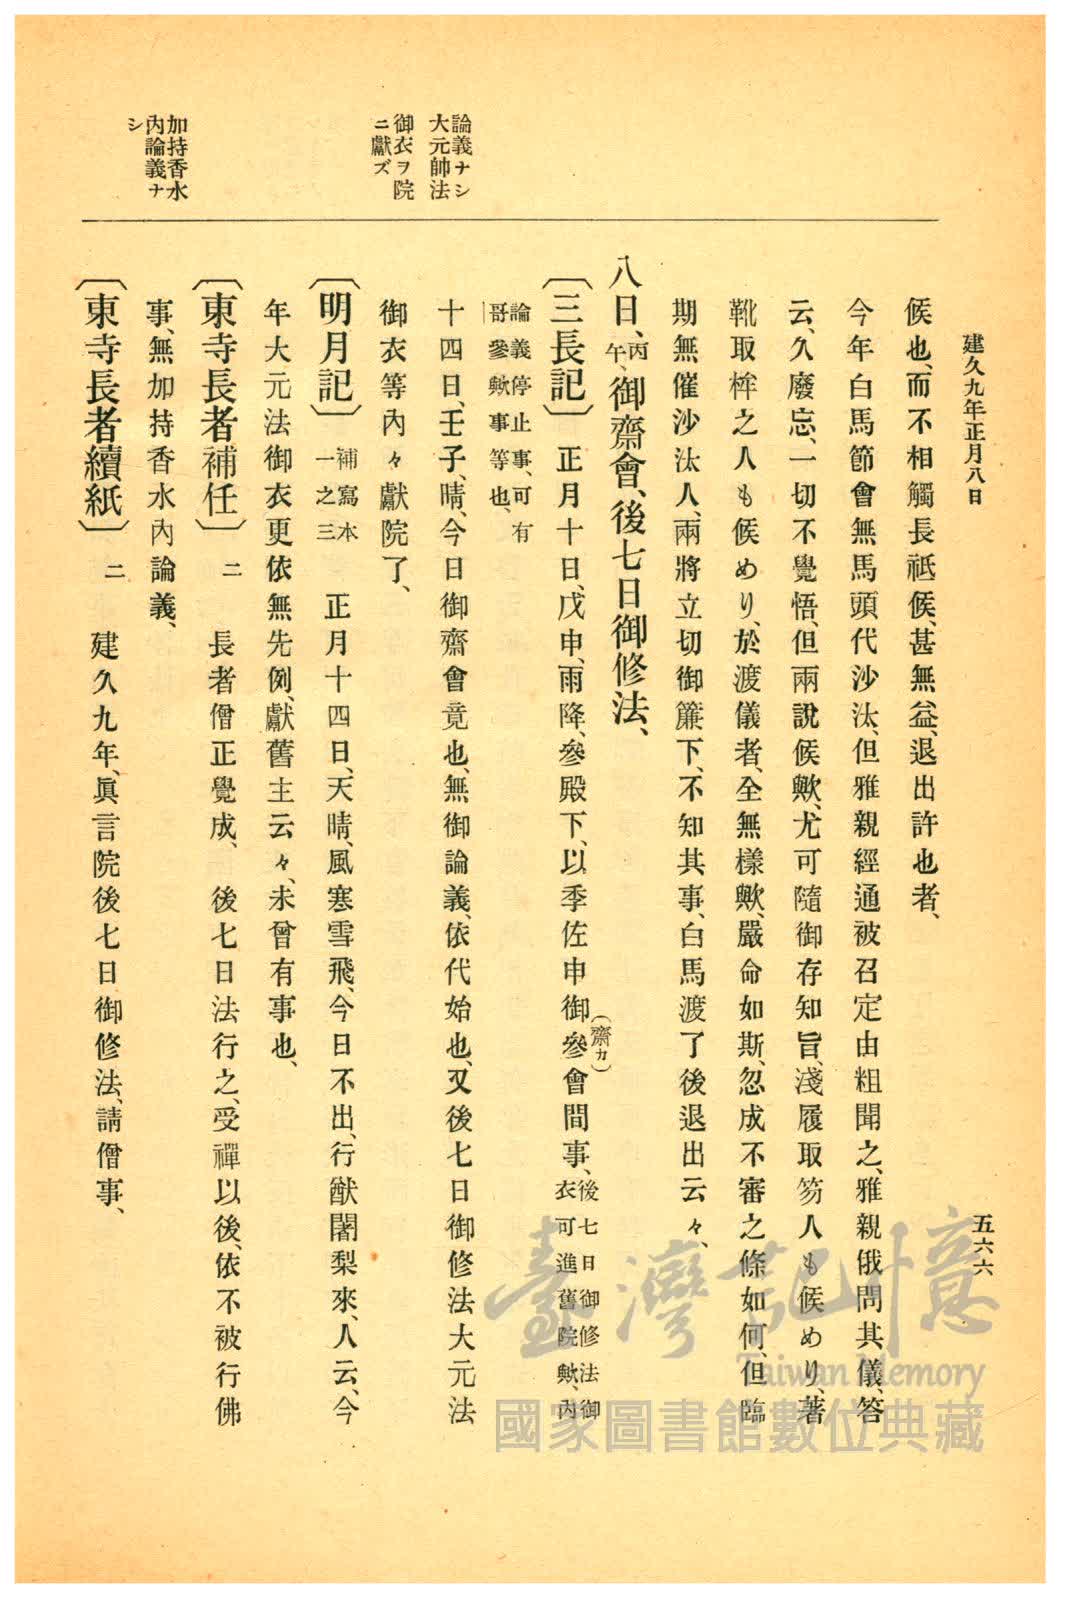 建久九年正月八日
五六六
候也、而不相觸長祗候、甚無益、退出許也者、
今年白馬節會無馬頭代沙汰、但雅親經通被召定由粗聞之、雅親俄問其儀、答
云、久廢忘、一切不覺悟、但兩說候歟、尤可隨御存知旨、淺履取笏人も候めり、著
靴取桙之人も候めり、於渡儀者、全無樣歟、嚴命如斯、忽成不審之條如何、但臨
期無催沙汰人、兩將立切御簾下、不知其事、白馬渡了後退出云々、
八日、丙午、御齋會、後七日御修法、
〔三長記〕 正月十日、戊申、雨降、參殿下、以季佐申御參(齋カ)會間事、後七日御修法御衣可進舊院歟、內
論義停止事、可有哥參歟事等也、
十四日、壬子、晴、今日御齋會竟也、無御論義、依代始也、又後七日御修法大元法
御衣等內々獻院了、
〔明月記〕 補寫本一之三 正月十四日、天晴、風寒雪飛、今日不出、行猷闍梨來、人云、今
年大元法御衣更依無先例、獻舊主云々、未曾有事也、
〔東寺長者補任〕 二 長者僧正覺成、 後七日法行之、受禪以後、依不被行佛
事、無加持香水內論義、
〔東寺長者續紙〕 二 建久九年、眞言院後七日御修法、請僧事、
論義ナシ
大元帥法
御衣ヲ院
ニ獻ズ
加持香水
內論義ナ
シ
臺灣記憶
Taiwan Memory
國家圖書館數位典藏